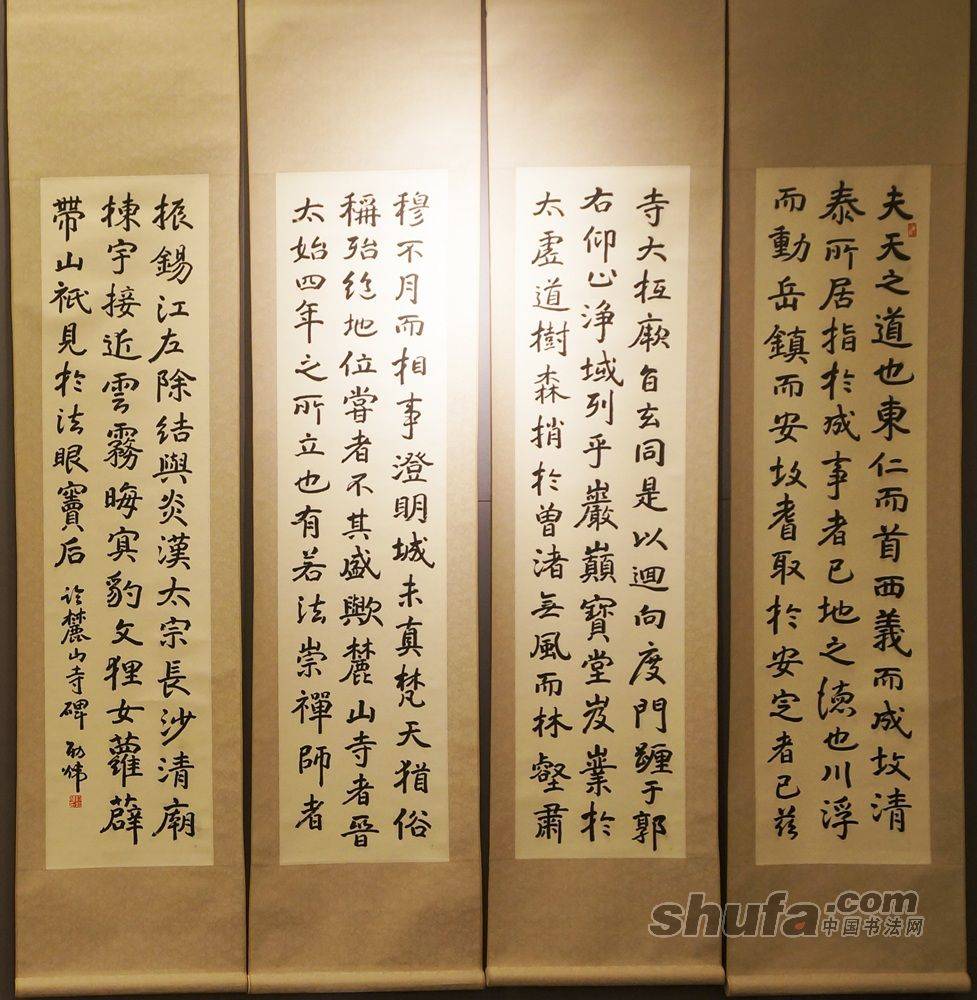 夫天之道也東仁而首西義而成故清
泰所居指於成事者已地之德也川浮
而動岳鎮而安故耆取於安定者已茲
寺大抵厥旨玄同是以迴向度門躔于郭
右仰止淨域列乎巖巔寶堂岌嶪於
太虛道樹森捎於曾渚無風而林壑肅
穆不月而相事澄明城未真梵天猶俗
稱殆絶地位嘗者不其盛歟麓山寺者晉
太始四年之所立也有若法崇禪師者
振錫江左除結與炎漢太宗長沙清廟
棟宇接近雲霧晦㝠豹文狸女蘿薜
帶山祇見於法眼竇后
臨麓山寺碑
shufa.com
中国书法网